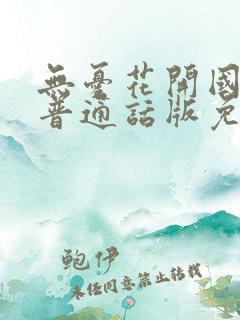 無憂花開國
普通話版免
鲍伊
未經同意禁止轉載